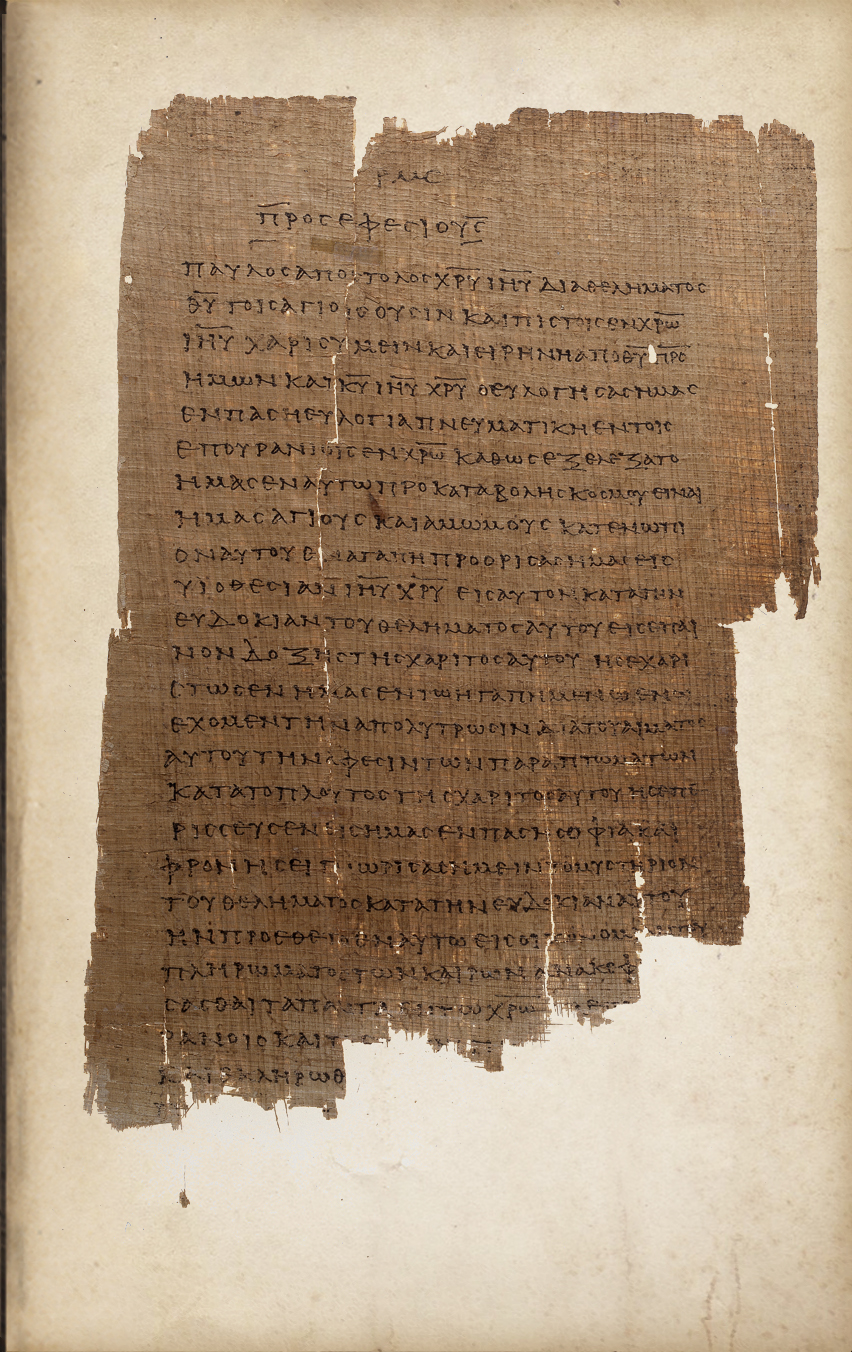 ρμϛ
προσ εφεσιους
παυλος αποστολος χρυ ιηυ δια θεληματος
θυ τοις αγιοις ουσιν και πιστοις εν χρω
ιηυ χαρις υμειν και ειρηνη απο θυ προ
ημων και κυ ιηυ χρυ ο ευλογησας ημας
εν παση ευλογια πνευματικη εν τοις
επουρανιοις εν χρω καθως εξελεξατο
ημας εν αυτω προ καταβολης κοσμου ειναι
ημας αγιους και αμωμους κατενωπι
ον αυτου εν αγαπη προορισας ημας εις
υιοθεσιαν ιηυ χρυ εις αυτον κατα την
ευδοκιαν του θεληματος αυτου εις επαι
νον δοξης της χαριτος αυτου ης εχαρι
τωσεν ημας εν τω ηγαπημενω εν ω
εχομεν την απολυτρωσιν δια του αιματος
αυτου την αφεσιν των παραπτωματων
κατα το πλουτος της χαριτος αυτου ης επε
ρισσευσεν εις ημας εν παση σοφια και
φρονησει γνωρισας ημειν το μυστηριον
του θεληματος κατα την ευδοκιαν αυτου
ην προεθετο εν αυτω εις οικονομιαν
πληρωματος των καιρων ανακεφ
σασθαι τα παντα εν τω χρω
ρανοις και τ
κ εκληρωθ